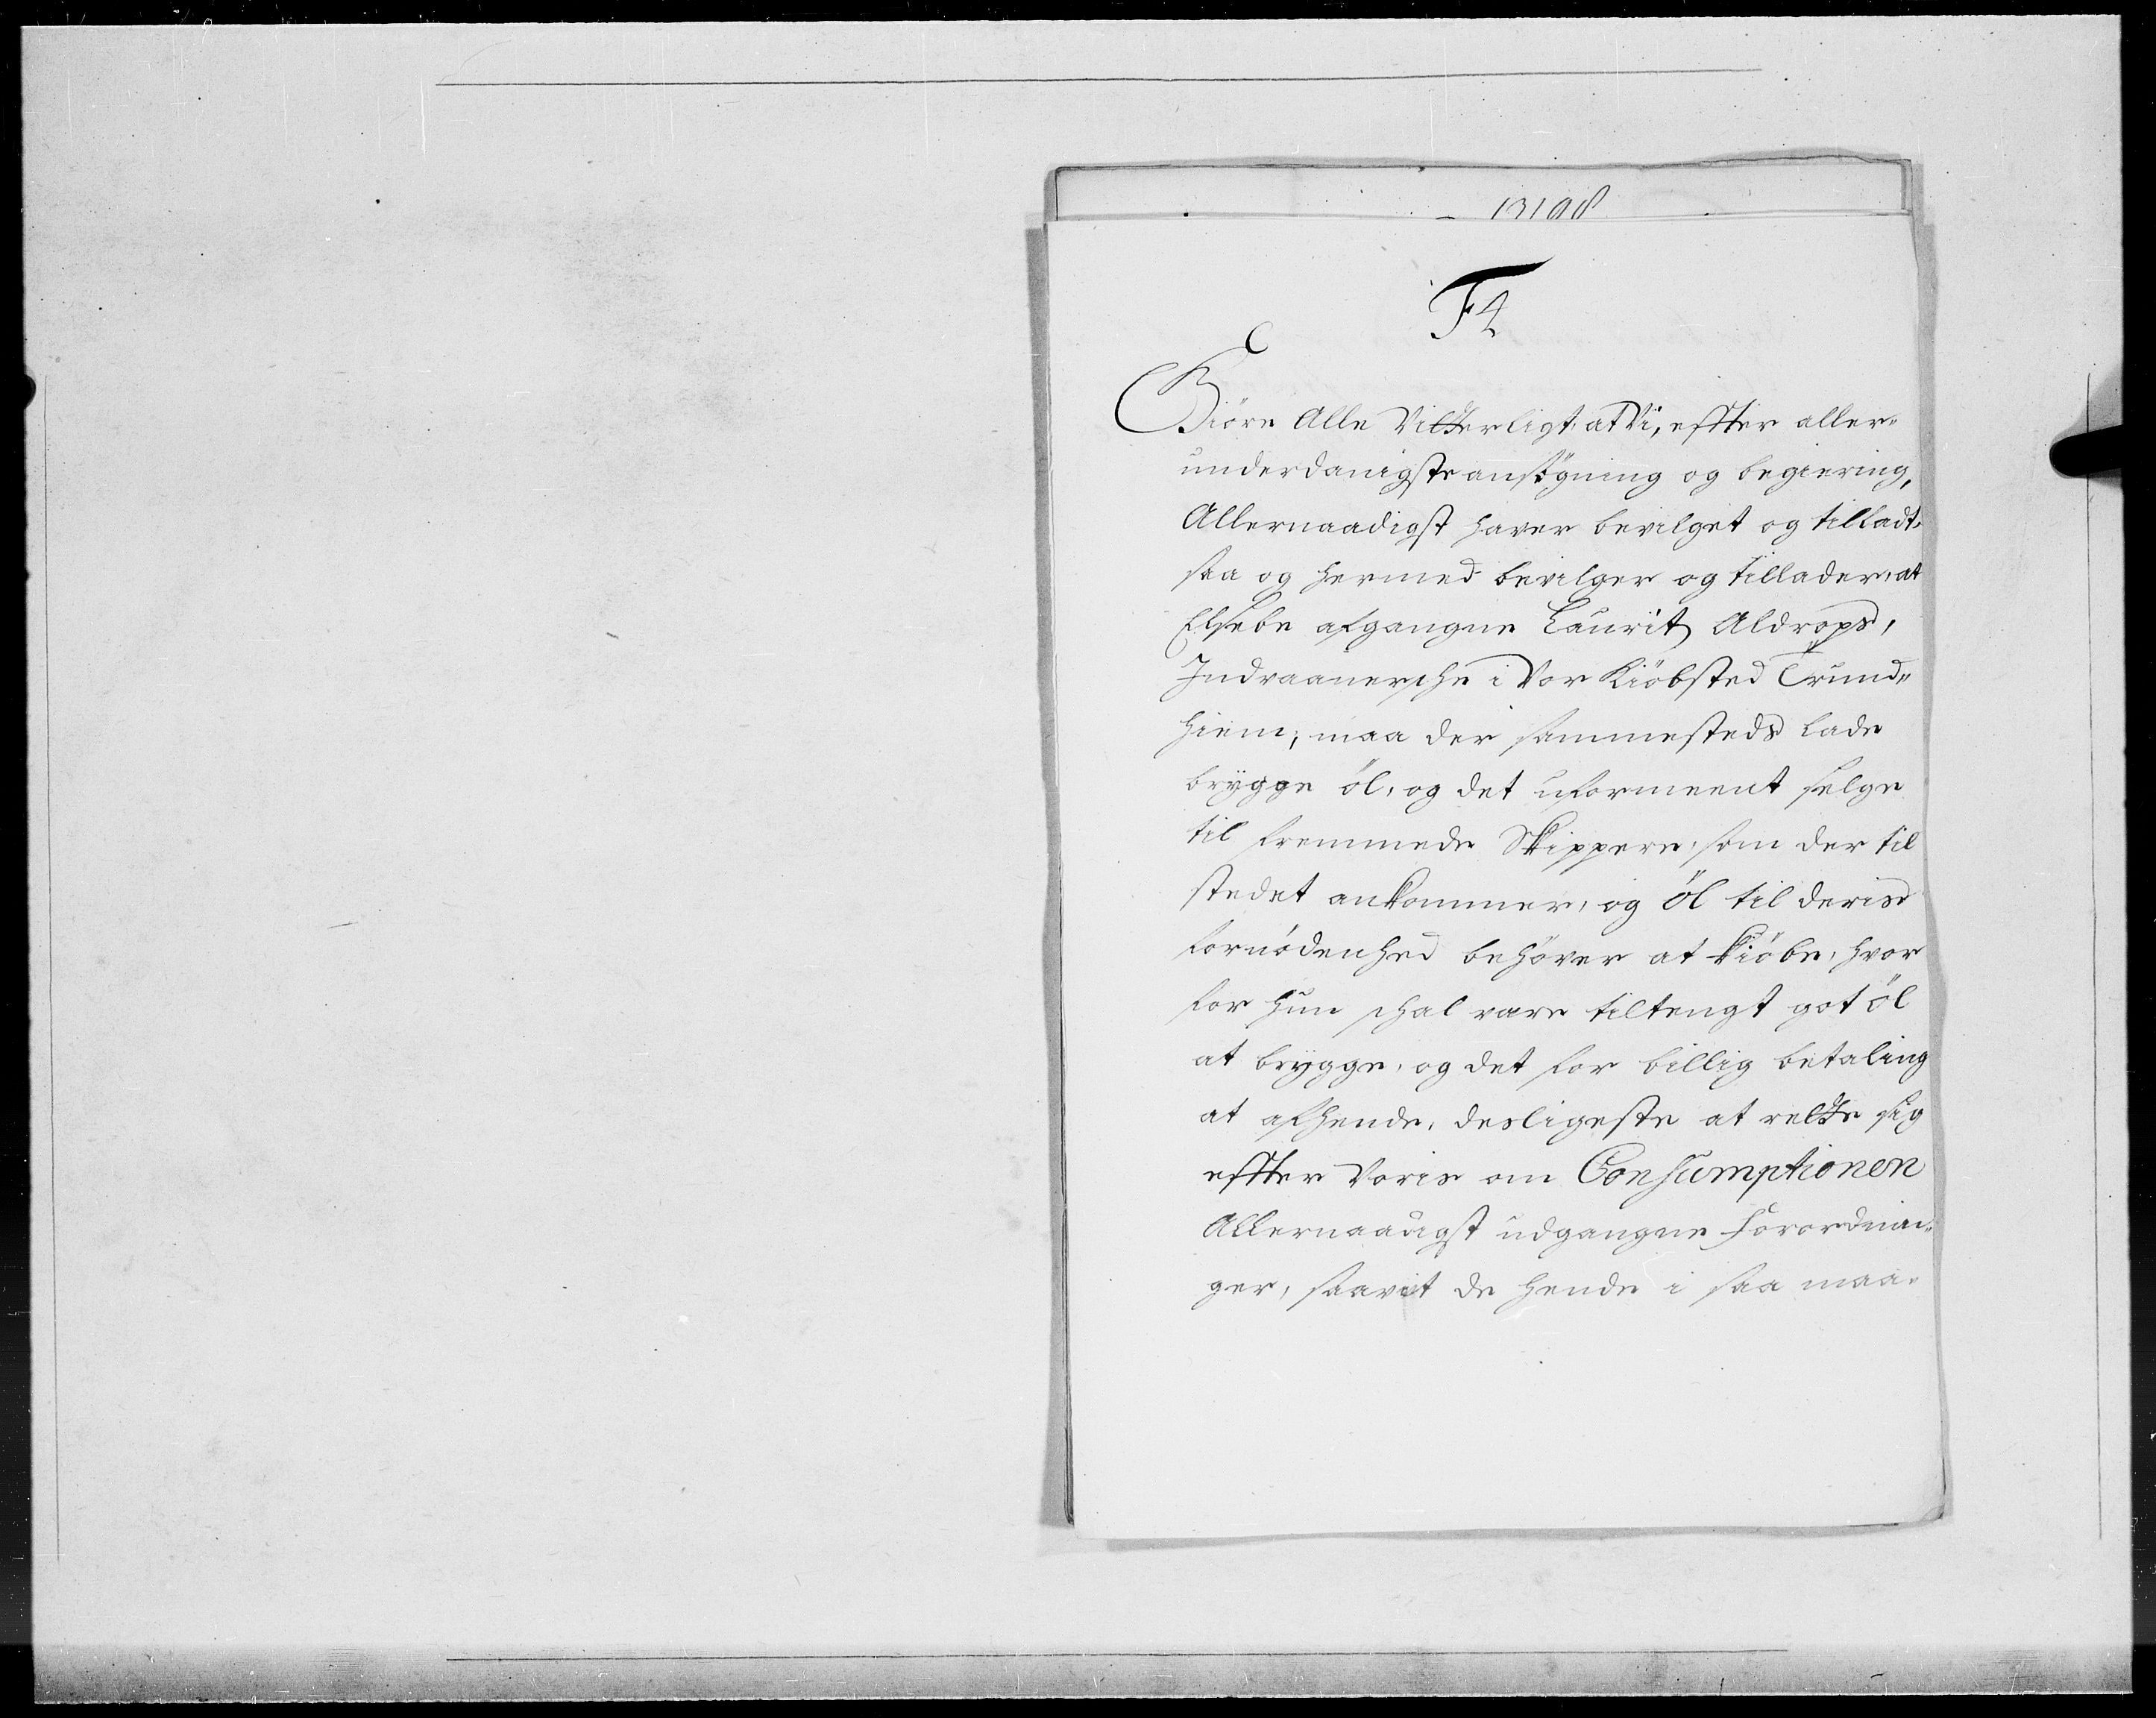 13198
F4
Giöre Alle Vitterligt, at Vi, effter aller-
underdanigste ansögning og begiering,
Allernaadigst haver bevilget og tilladt,
saa og hermed bevilger og tillader, at
Elsebe afgangne Laurits Aldrops,
Indvaanersche i Vor Kiöbsted Trund-
hiem, maa der sammesteds lade
brygge öl, og det uformeent selge
til fremmede Skippere, som der til
stedet ankommer, og öl til deris
fornödenhed behöver at kiöbe, hvor
for hun schal være tiltengt got öl
at brygge, og det for billig betaling
at afhende, desligeste at rette sig
effter Voris om Consumptionen
Allernaadigst udgangne Forordnin-
ger, saavit de hende i saa maa-